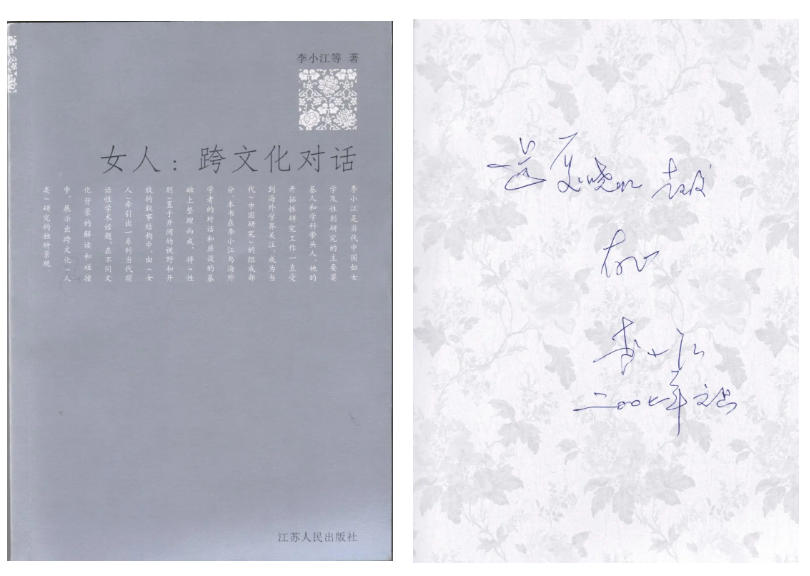 李小江等 著
女人：跨文化对话
李小江是当代中国妇女
学及性别研究的主要奠
基人和学科带头人，她的
开拓性研究工作一直受
到海外学界关注，成为当
代“中国研究”的组成部
分。本书在李小江与海外
学者的对话和座谈的基
础上整理而成，将“性
别”置于广阔的视野和开
放的叙事结构中，由“女
人”牵引出一系列当代前
沿性学术话题，在不同文
化背景的解读和碰撞
中，展示出跨文化“人
类”研究的独特景观
江苏人民出版社
送夏晓虹
存正
李小江
二〇〇七年